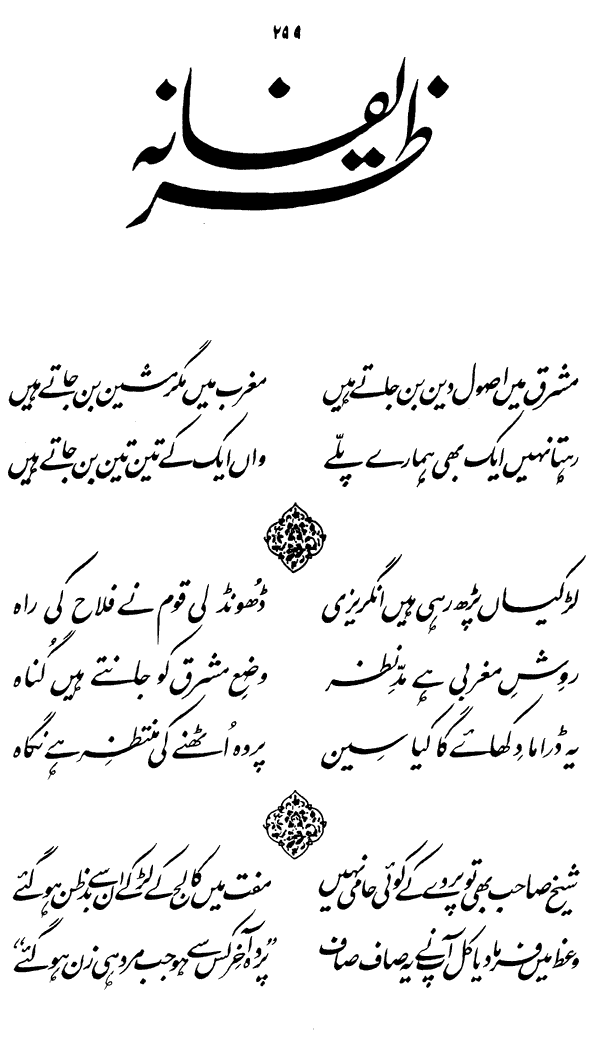 ظریفانہ
مشرق میں اصول دین بن جاتے ہیں مغرب میں مگر مشین بن جاتے ہیں
رہتا نہیں ایک بھی ہمارے پلّے واں ایک کے تین تین بن جاتے ہیں
لڑکیاں پڑھ رہی ہیں انگریزی ڈھُونڈ لی قوم نے فلاح کی راہ
روِشِ مغربی ہے مدِّنظر وضعِ مشرق کو جانتے ہیں گُناہ
یہ ڈراما دِکھائے گا کیا سِین پردہ اُٹھنے کی منتظر ہے نگاہ
شیخ صاحب بھی تو پردے کے کوئی حامی نہیں مفت میں کالج کے لڑکے ان سے بدظن ہو گئے
وعظ میں فرما دیا کل آپ نے یہ صاف صاف ”پردہ آخر کس سے ہو جب مرد ہی زن ہو گئے“